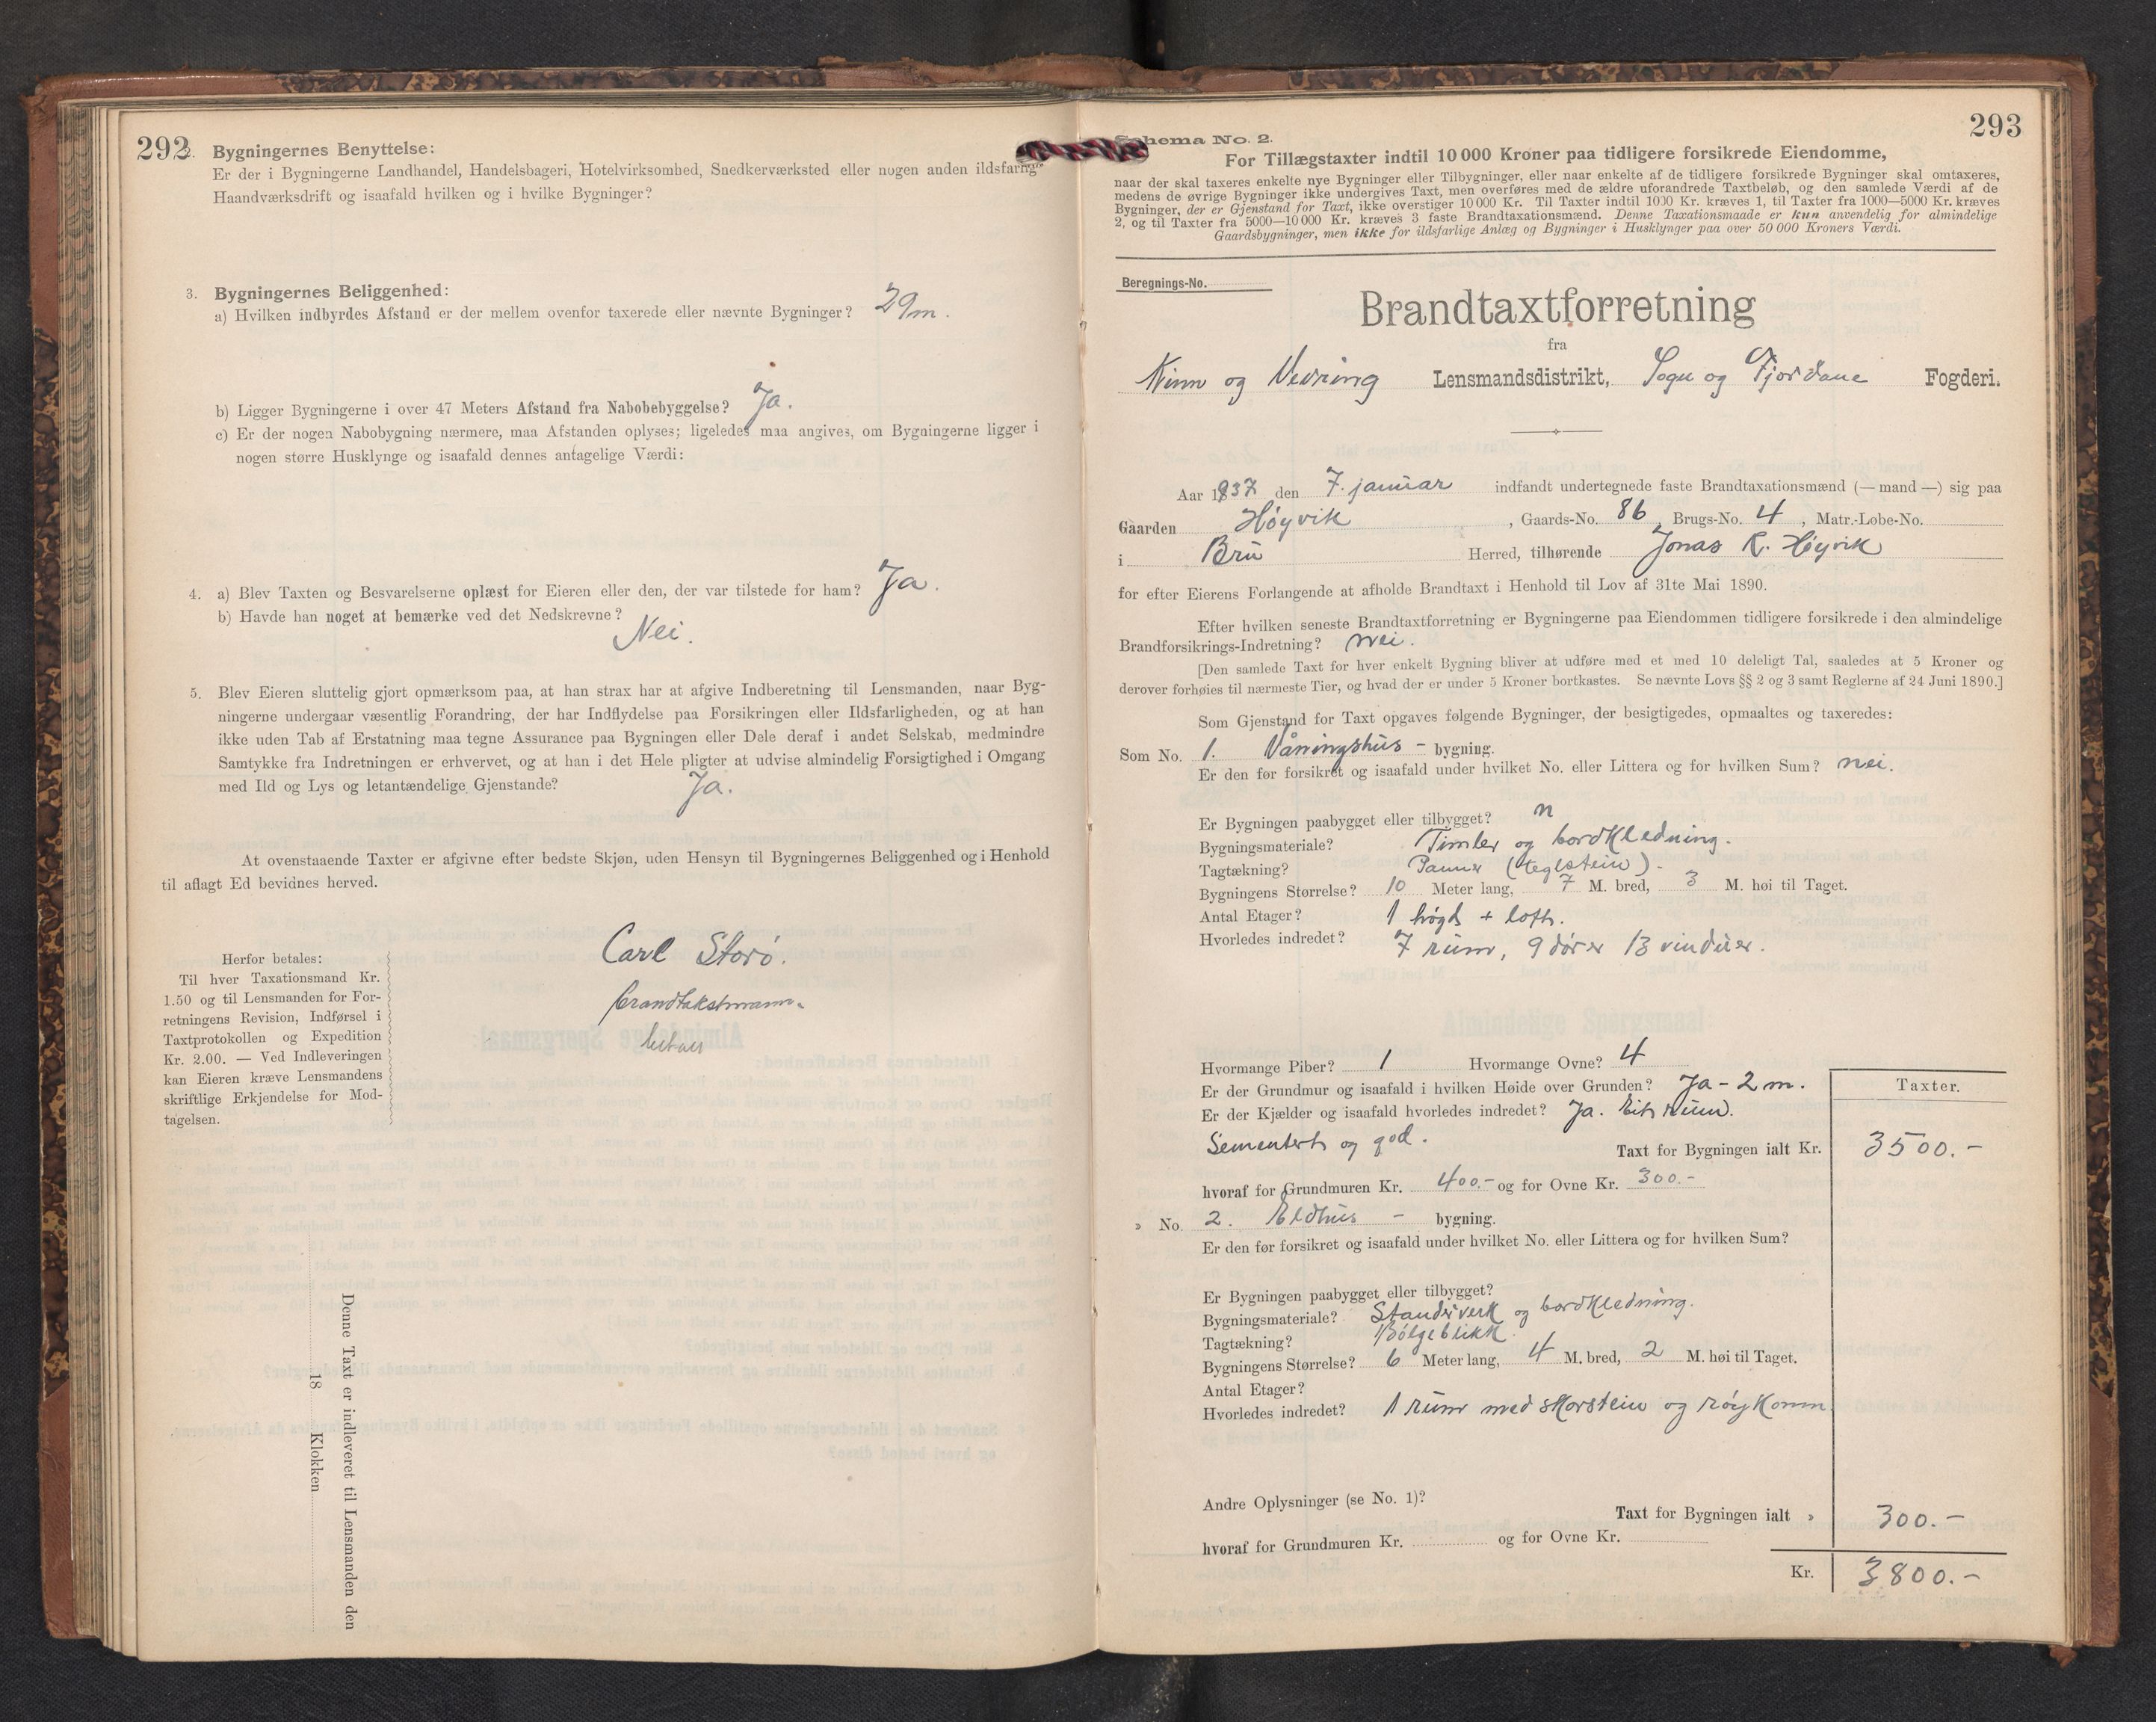 292
2. Bygningernes Benyttelse:
Er der i Bygningerne Landhandel, Handelsbageri, Hotelvirksomhed, Snedkerværksted eller nogen anden ildsfarlig
Haandværksdrift og isaafald hvilken og i hvilke Bygninger?
3. Bygningernes Beliggenhed:
a) Hvilken indbyrdes Afstand er der mellem ovenfor taxerede eller nævnte Bygninger? 29m.
b) Ligger Bygningerne i over 47 Meters Afstand fra Nabobebyggelse? Ja.
c) Er der nogen Nabobygning nærmere, maa Afstanden oplyses; ligeledes maa angives, om Bygningerne ligger i
nogen større Husklynge og isaafald dennes antagelige Værdi:
4. a) Blev Taxten og Besvarelserne oplæst for Eieren eller den, der var tilstede for ham? Ja.
b) Havde han noget at bemærke ved det Nedskrevne?
Nei.
5. Blev Eieren sluttelig gjort opmærksom paa, at han strax har at afgive Indberetning til Lensmanden, naar Byg-
ningerne undergaar væsentlig Forandring, der har Indflydelse paa Forsikringen eller Ildsfarligheden, og at han
ikke uden Tab af Erstatning maa tegne Assurance paa Bygningen eller Dele deraf i andet Selskab, medmindre
Samtykke fra Indretningen er erhvervet, og at han i det Hele pligter at udvise almindelig Forsigtighed i Omgang
med Ild og Lys og letantændelige Gjenstande? Ja.
At ovenstaaende Taxter er afgivne efter bedste Skjøn, uden Hensyn til Bygningernes Beliggenhed og i Henhold
til aflagt Ed bevidnes herved.
Carl Storö.
brandtakstmann.
Herfor betales:
Til hver Taxationsmand Kr.
1.50 og til Lensmanden for For-
retningens Revision, Indførsel i
Taxtprotokollen og Expedition
Kr. 2.00. — Ved Indleveringen
kan Eieren kræve Lensmandens
skriftlige Erkjendelse for Mod-
tagelsen.
Denne Taxt er indleveret til Lensmanden den
18 Klokken
293
Schema No. 2.
For Tillægstaxter indtil 10 000 Kroner paa tidligere forsikrede Eiendomme,
naar der skal taxeres enkelte nye Bygninger eller Tilbygninger, eller naar enkelte af de tidligere forsikrede Bygninger skal omtaxeres,
medens de øvrige Bygninger ikke undergives Taxt, men overføres med de ældre uforandrede Taxtbeløb, og den samlede Værdi af de
Bygninger, der er Gjenstand for Taxt, ikke overstiger 10 000 Kr. Til Taxter indtil 1000 Kr. kræves 1, til Taxter fra 1000—5000 Kr. kræves
2, og til Taxter fra 5000—10 000 Kr. kræves 3 faste Brandtaxationsmænd. Denne Taxationsmaade er kun anvendelig for almindelige
Gaardsbygninger, men ikke for ildsfarlige Anlæg og Bygninger i Husklynger paa over 50 000 Kroners Værdi.
Beregnings-No.
Brandtaxtforretning
fra
Kinn og Vevring Lensmandsdistrikt, Sogn og Fjordane Fogderi.
Aar 1937 den 7. januar indfandt undertegnede faste Brandtaxationsmænd (— mand —) sig paa
Gaarden Høyvik, Gaards-No. 86, Brugs-No. 4, Matr.-Løbe-No.
i Bru Herred, tilhørende Jonas R. Høyvik
for efter Eierens Forlangende at afholde Brandtaxt i Henhold til Lov af 31te Mai 1890.
Efter hvilken seneste Brandtaxtforretning er Bygningerne paa Eiendommen tidligere forsikrede i den almindelige
Brandforsikrings-Indretning? nei.
[Den samlede Taxt for hver enkelt Bygning bliver at udføre med et med 10 deleligt Tal, saaledes at 5 Kroner og
derover forhøies til nærmeste Tier, og hvad der er under 5 Kroner bortkastes. Se nævnte Lovs §§ 2 og 3 samt Reglerne af 24 Juni 1890.]
Som Gjenstand for Taxt opgaves følgende Bygninger, der besigtigedes, opmaaltes og taxeredes:
Som No. 1. Våningshus - bygning.
Er den før forsikret og isaafald under hvilket No. eller Littera og for hvilken Sum? nei.
Er Bygningen paabygget eller tilbygget? n
Bygningsmateriale? Timber og bordkledning.
Tagtækning? Panner (teglstein).
Bygningens Størrelse? 10 Meter lang, 7 M. bred, 3 M. høi til Taget.
Antal Etager? 1 høgd + loft.
Hvorledes indredet? 7 rum, 9 dører 13 vinduer.
Hvormange Piber? 1 Hvormange Ovne? 4
Er der Grundmur og isaafald i hvilken Høide over Grunden? Ja - 2 m.
Taxter.
Er der Kjælder og isaafald hvorledes indredet? Ja. Eit rum.
Sementert og god.
Taxt for Bygningen ialt Kr. 3500.-
hvoraf for Grundmuren Kr. 400.- og for Ovne Kr. 300.-
» No. 2. Eldhus - bygning.
Er den før forsikret og isaafald under hvilket No. eller Littera og for hvilken Sum?
Er Bygningen paabygget eller tilbygget?
Bygningsmateriale? Standverk og bordkledning.
Tagtækning? Bölgeblikk.
Bygningens Størrelse? 6 Meter lang, 4 M. bred, 2 M. høi til Taget.
Antal Etager?
Hvorledes indredet? 1 rum med skorstein og røykomn.
Andre Oplysninger (se No. 1)?
Taxt for Bygningen ialt » 300.-
hvoraf for Grundmuren Kr. og for Ovne Kr.
Kr. 3800.-